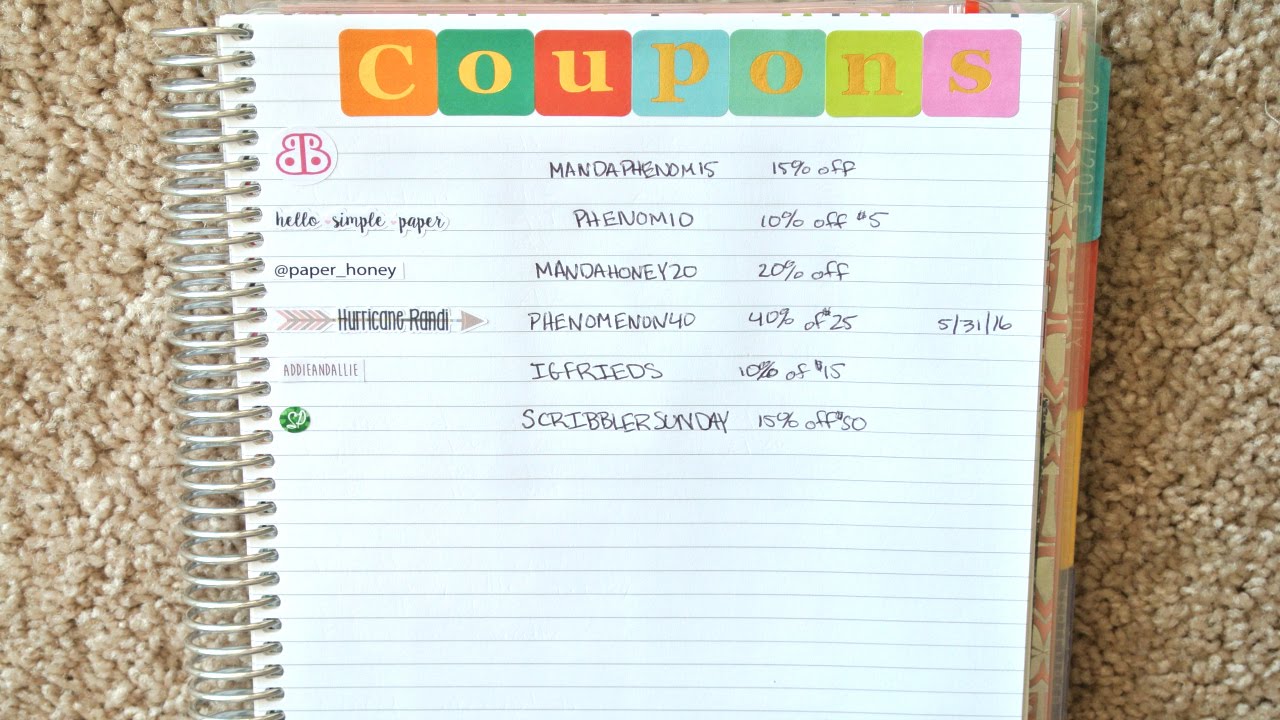 Coupons
BB MANDAPHENOM15 15% off
hello simple paper PHENOM10 10% off $5
@paper_honey MANDAHONEY20 20% off
Hurricane Randi PHENOMENON40 40% of $25 5/31/16
ADDIEANDALLIE IGFRIEDS 10% of $15
SP SCRIBBLERSUNDAY 15% off $50
2014/2015